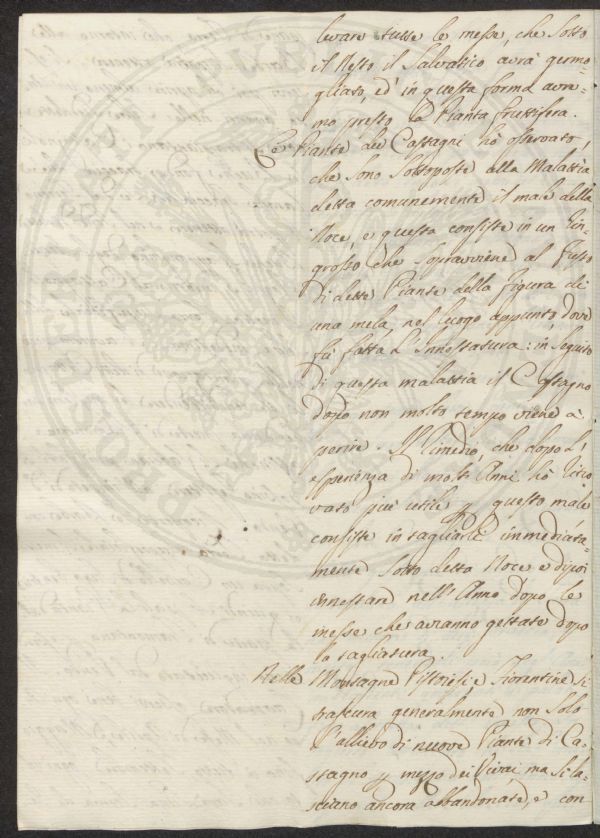 levare tutte le messe, che sotto
il Nesto il Salvatico avrà germo=
gliato, ed' in questa forma avre=
mo presto la Pianta fruttifera.
Le Piante dei Castagni hò osservato,
che sono sottoposte alla Malattia
detta comunemente il male della
Noce, e questa consiste in un Rin=
grosso che sopravviene al fusto
di dette Piante della figura di
una mela, nel luogo appunto, dove
fù fatta l'Innestatura: in seguito
di questa malattia il Castagno
dopo non molto tempo viene à
perire. Il Rimedio, che dopo l'
esperienza di molti Anni hò ritro
vato più utile p questo male
consiste in tagliarli immediata=
mente sotto detta Noce e dipoi
innestare nell'Anno dopo le
messe che avranno gettate dopo
la tagliatura.
Nelle Montagne Pistoiesi, e Fiorentine si
trascura generalmente non solo
l'allievo di nuove Piante di Ca=
stagno p mezzo dei Vivai, ma si la=
sciano ancora abbandonate, e con
PROSPERITATI PUB